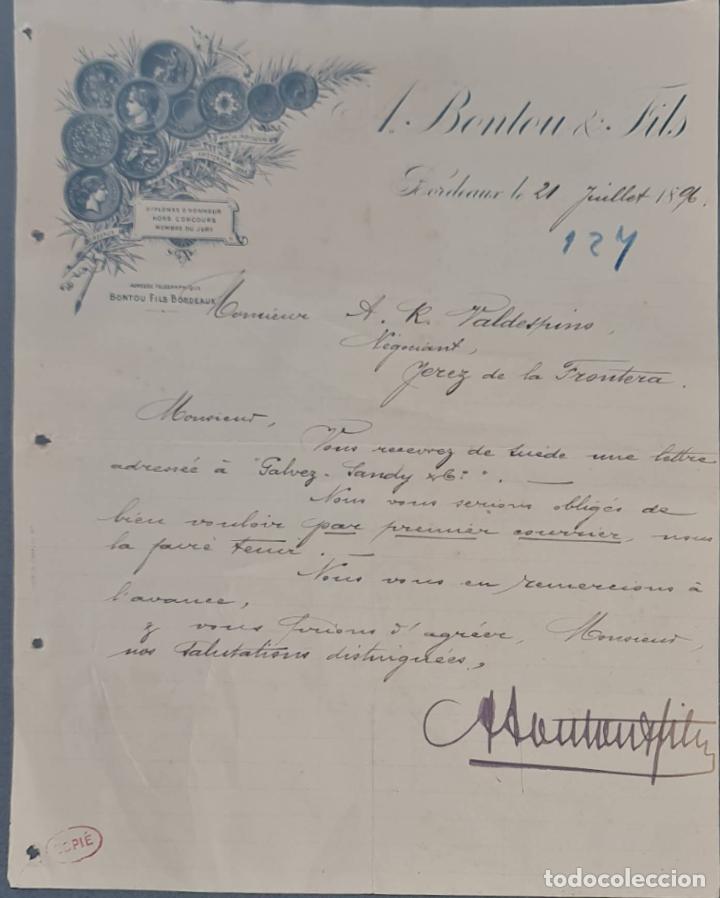 A. Bontou & Fils
Bordeaux le 21 Juillet 1896.
127
DIPLOMES D'HONNEUR
HORS CONCOURS
MEMBRE DU JURY
ADRESSE TELEGRAPHIQUE
BONTOU FILS BORDEAUX
Monsieur A. R. Valdespino,
Négociant,
Jerez de la Frontera.
Monsieur,
Vous recevrez de Suède une lettre
adressée à "Galvez-Sandy & Cie". —
Nous vous serions obligés de
bien vouloir par premier courrier, nous
la faire tenir. —
Nous vous en remercions à
l'avance,
& vous prions d'agréer, Monsieur,
nos salutations distinguées,
A Bontou & fils
COPIÉ
todocoleccion.net